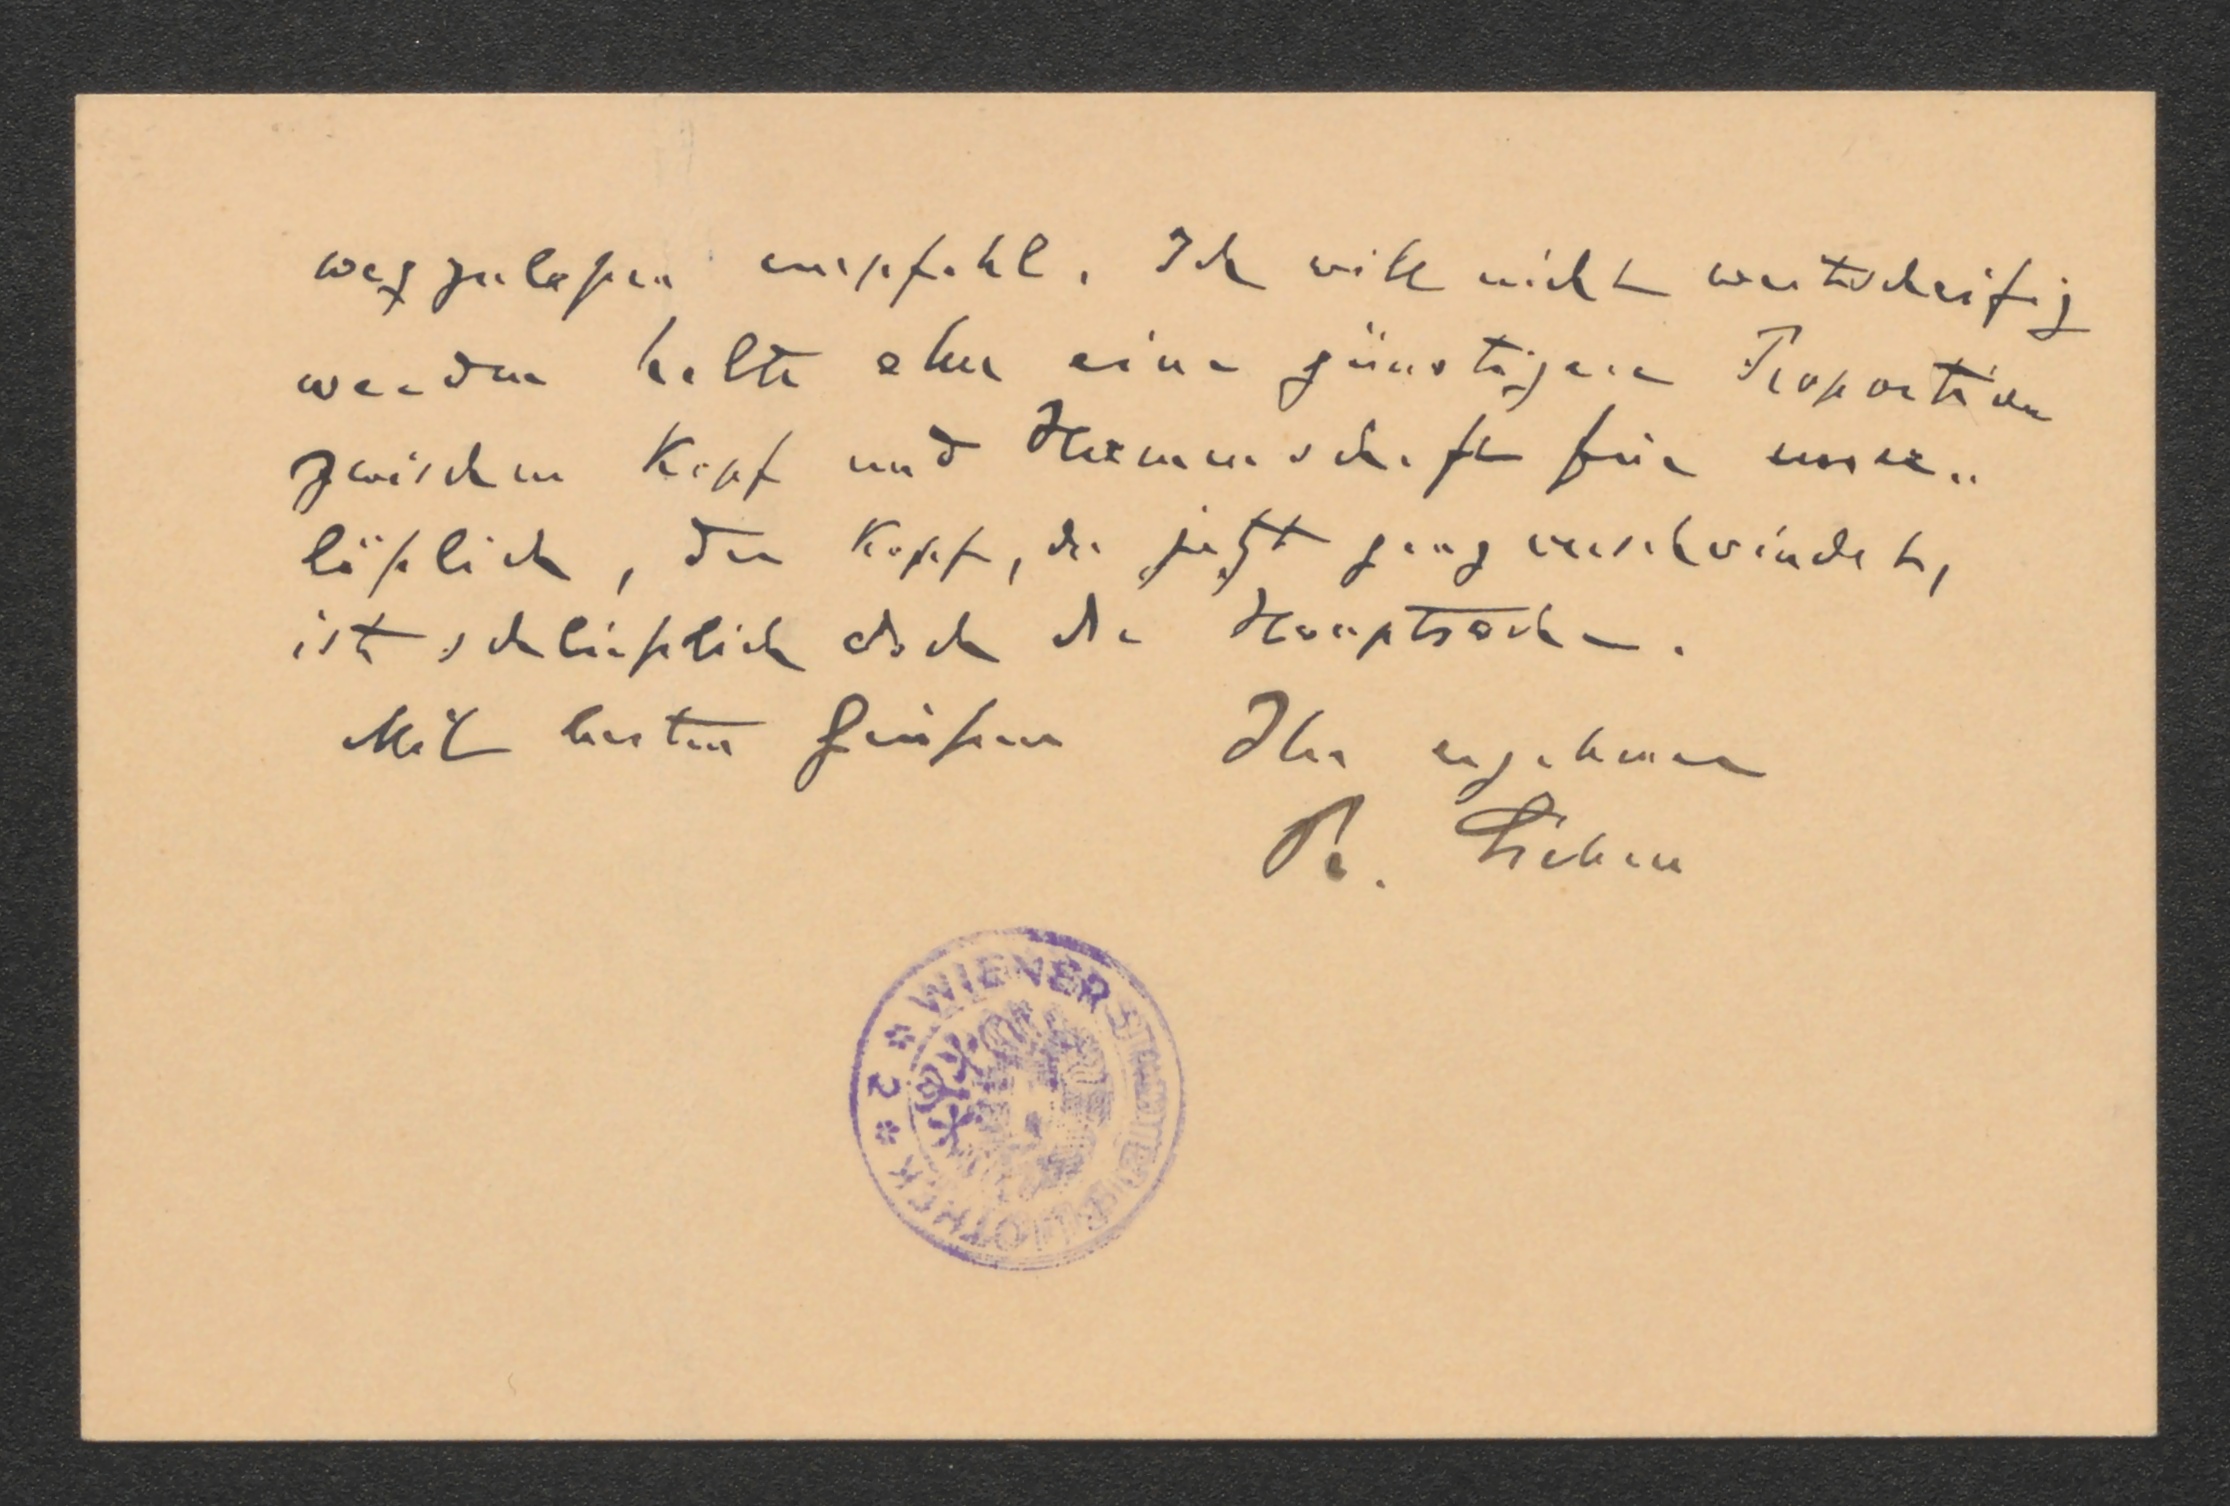 wegzulaßen empfahl. Ich will nicht weitschweifig
werden halte aber eine günstigere Proportion
zwischen Kopf und für uner-
läßlich, der Kopf, der jetzt ganz verschwindet,
ist schließlich doch die Hauptsache.
Mit besten Grüßen Ihr ergebener
R.
* WIENER STADTBIBLIOTHEK * 2